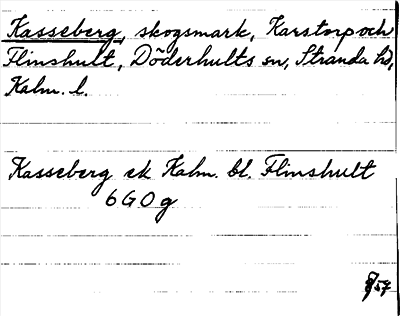 Kasseberg, skogsmark, Karstorp och
Flinshult, Döderhults sn, Stranda hd,
Kalm. l.
Kasseberg ek Kalm. bl. Flinshult
6G0g